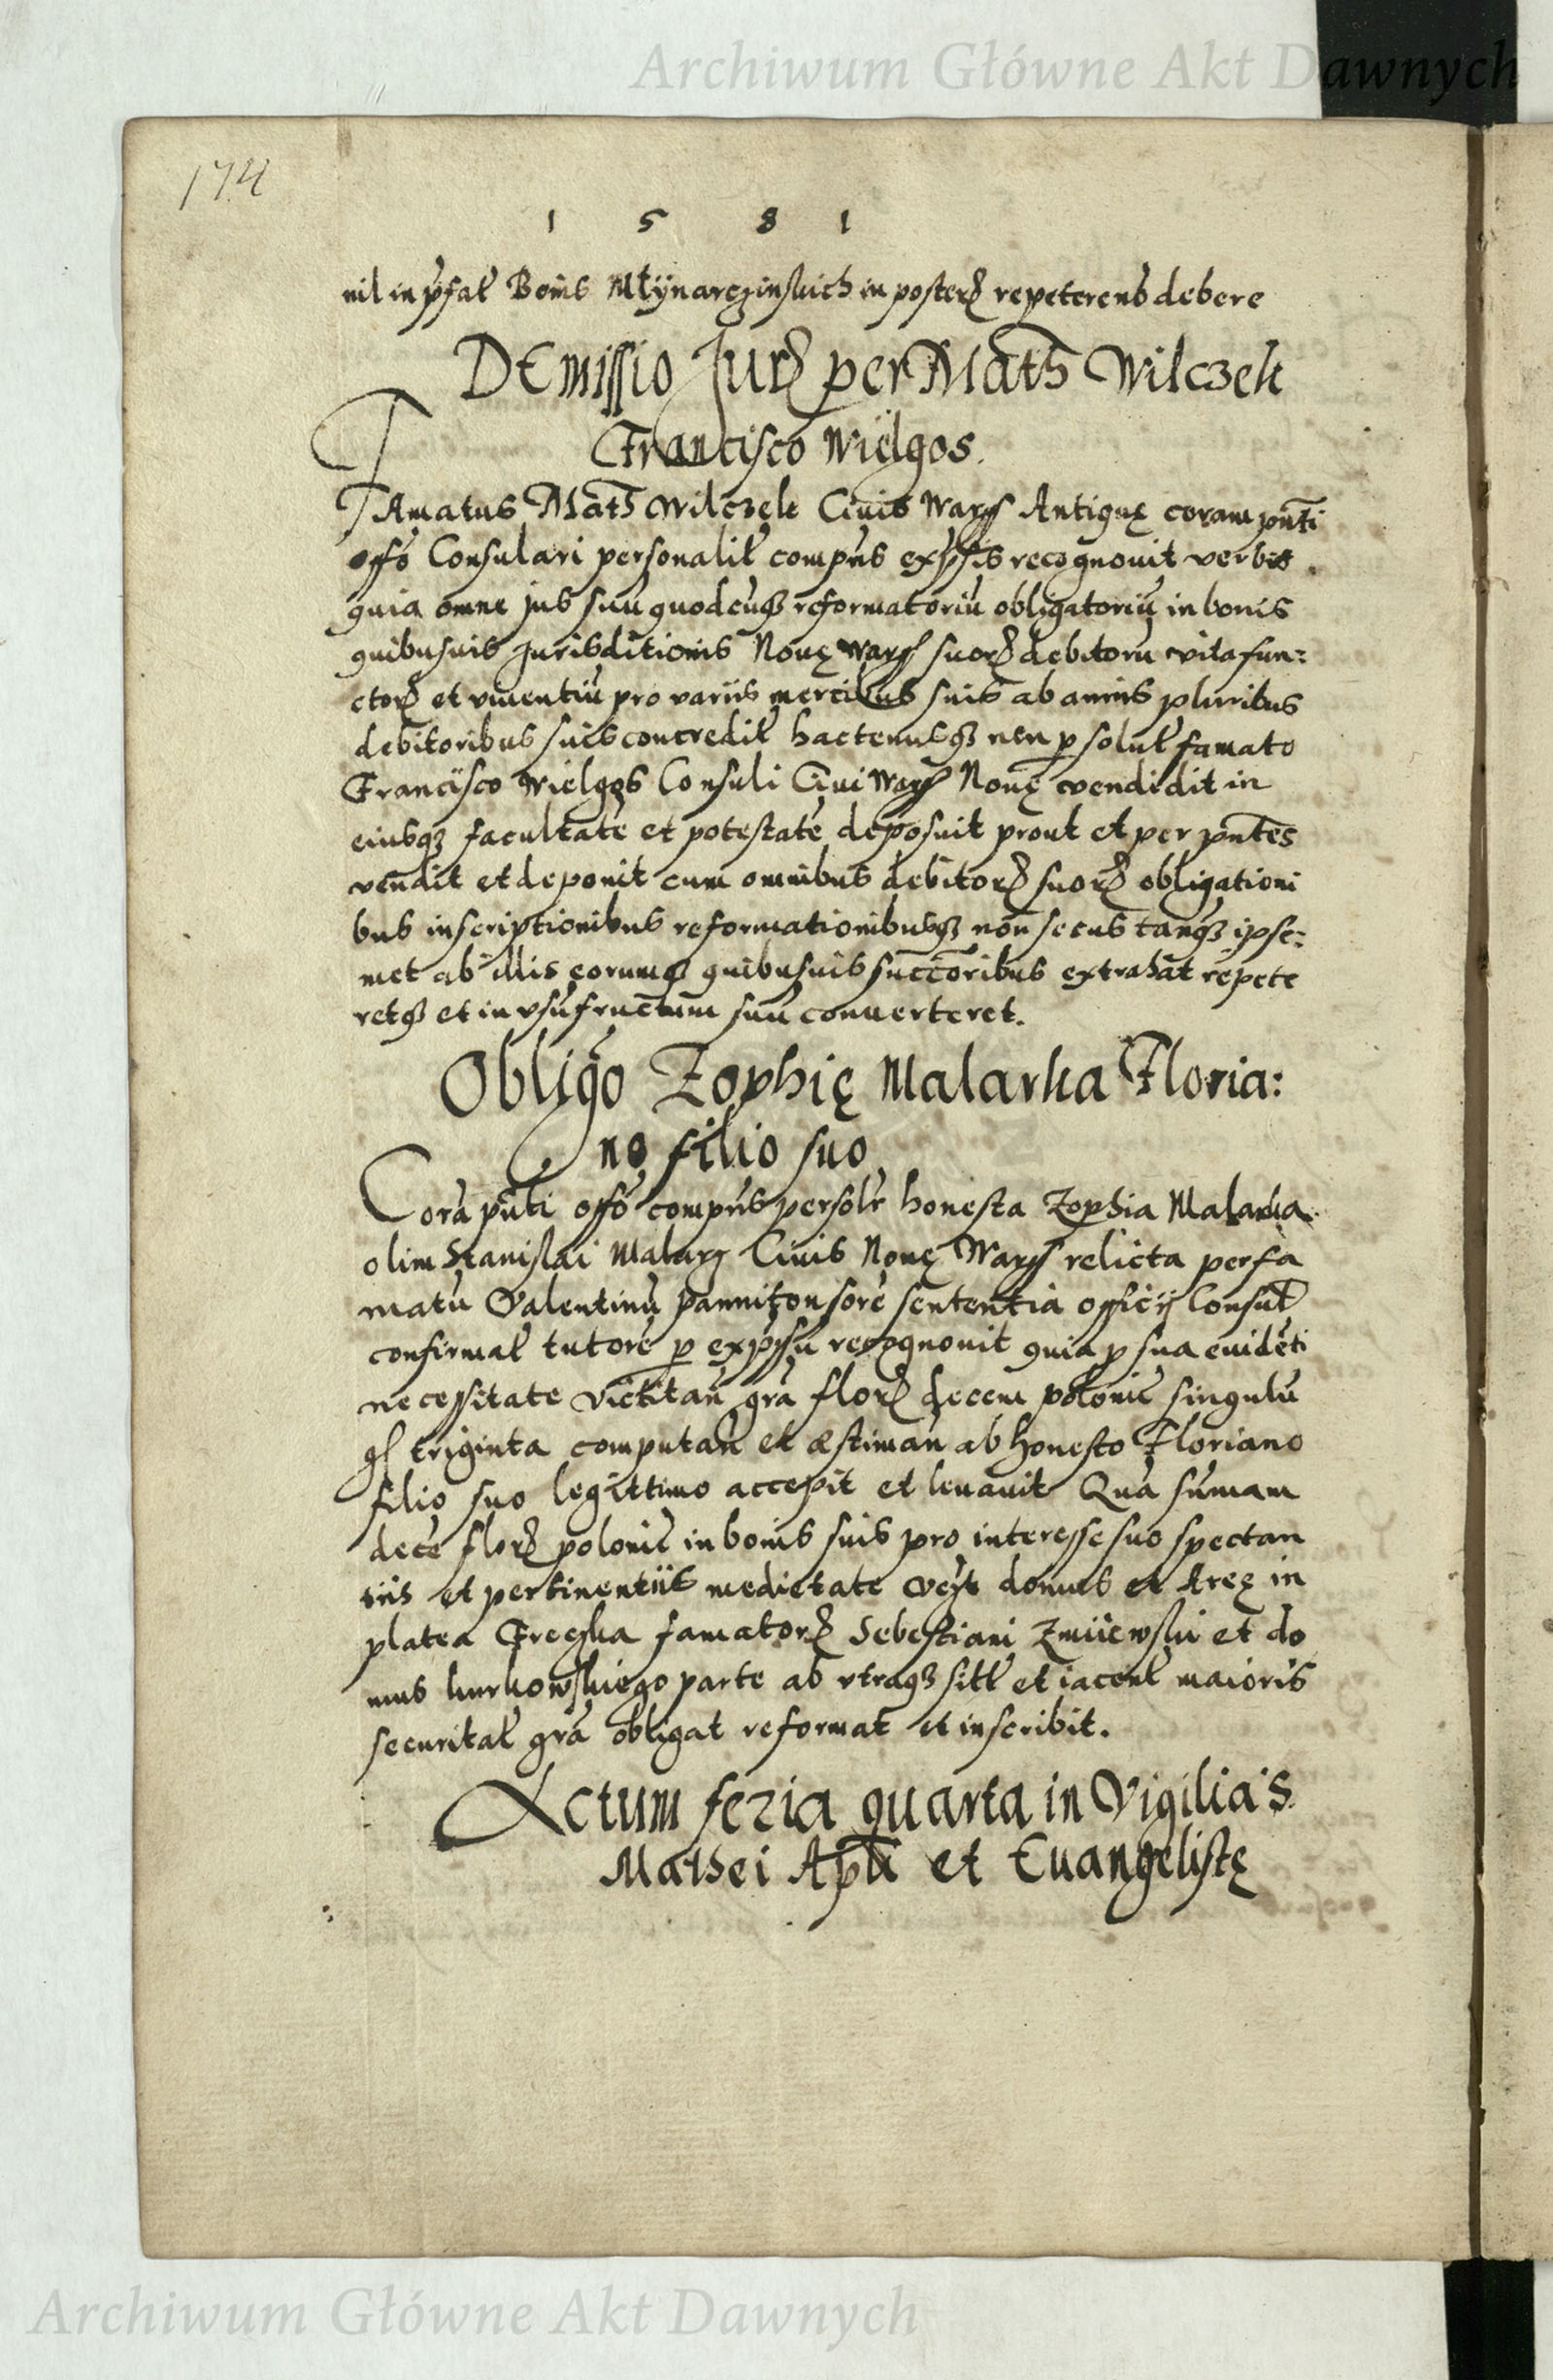 Archiwum Główne Akt Dawnych
174
1 5 8 1
nil in p̃fat̃ Bonis Młÿnarczinskich in poster̃ repeterens debere
DEmissio Jur̃ per Math̃ Wilczek
Francisco Wielgos.
FAmatus Math̃ Wilczek Ciuis Wars̃ Antiquę coram pñti
offõ Consulari personalit̃ compñs exp̃sis recognouit verbis.
quia omne jus suũ quodcũqꝫ reformatoriũ obligatoriũ in bonis
quibusuis Jurisditionis Nouę Wars̃ suor̃ debitorũ vita fun:
ctor̃ et viuentiũ pro variis mercibus suis ab annis pluribus
debitoribus suis concredit̃ hactenusqꝫ non ꝑsolut̃ famato
Francisco Wielgos Consuli Ciui Wars̃ Nouę vendidit in
eiusqꝫ facultatẽ et potestatẽ deposuit prout et per pñtes
vendit et deponit cum omnibus debitor̃ suor̃ obligationi
bus inscriptionibus reformationibusqꝫ non secus tanqꝫ ipse:
met ab illis eorumqꝫ quibusuis succẽoribus extrahat repete
retqꝫ et in vsũfructum suũ conuerteret.
Obligõ Zophię Malarka Floria:
no filio suo
Corã pñti offõ compñs persolr̃ honesta Zophia Malarka
olim Stanislai Malarz Ciuis Nouę Wars̃ relicta per fa
matũ Valentinũ pannitonsorẽ sententia officij Consul̃
confirmat̃ tutorẽ ꝑ exp̃ssũ recognouit quia ꝓ sua euidẽti
necessitate victitañ grã flor̃ decem polonic̃ singulũ
gͬ triginta computañ et æstimañ ab honesto Floriano
filio suo legittimo accepit et leuauit Quã sum̃am
decẽ flor̃ polonic̃ in bonis suis pro interesse suo spectan
tiis et pertinentiis medietate vcz̃t domus et Areę in
platea Frecska famator̃ Sebestiani Zmiiewski et do
mus kurkowskiego parte ab vtraqꝫ sitt̃ et iacent̃ maioris
securitat̃ grã obligat reformat et inscribit.
Actum feria quarta in Vigilia S.
Mathei Apl̃i et Euangelistę
Archiwum Główne Akt Dawnych